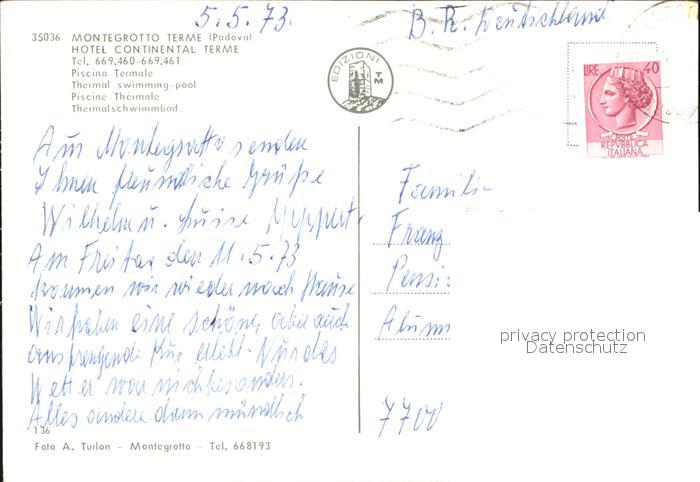 5.5.73.
B.R. Deutschland
35036 MONTEGROTTO TERME (Padova)
HOTEL CONTINENTAL TERME
Tel. 669.460-669.461
Piscina Termale
Thermal swimming-pool
Piscine Thèrmale
Thermalschwimmbad
EDIZIONI
TM
LIRE 40
POSTE
REPVBBLICA
ITALIANA
Aus Montegrotto senden
Ihnen freundliche Grüße
Wilhelm u. Luise
Am Freitag den 11.5.73
kommen wir wieder nach Hause
Wir haben eine schöne, aber auch
anstrengende Kur erlebt. Nur das
Wetter war nicht besonders.
Alles andere dann mündlich
136
Foto A. Turlon - Montegrotto - Tel. 668193
Famili
Franz
Pensi
7700
privacy protection
Datenschutz